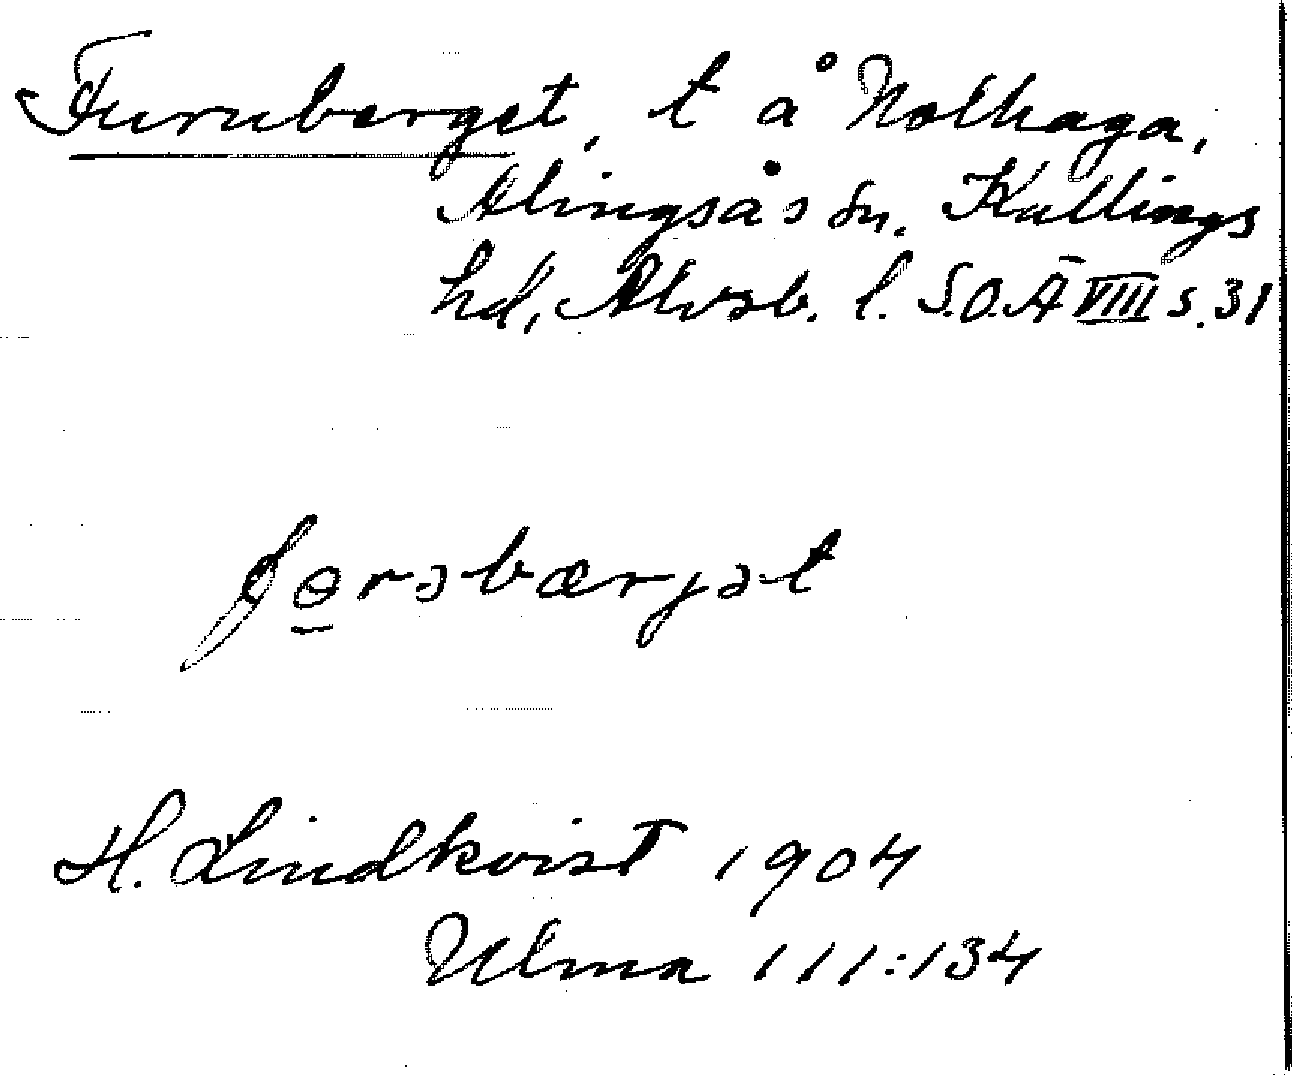 Furuberget, t å Nolhaga,
Alingsås sn. Kullings
hd, Älvsb. l. S.O.Ä VIII s. 31
fɵrəbærjət
H. Lindkvist 1904
Ulma 111:134